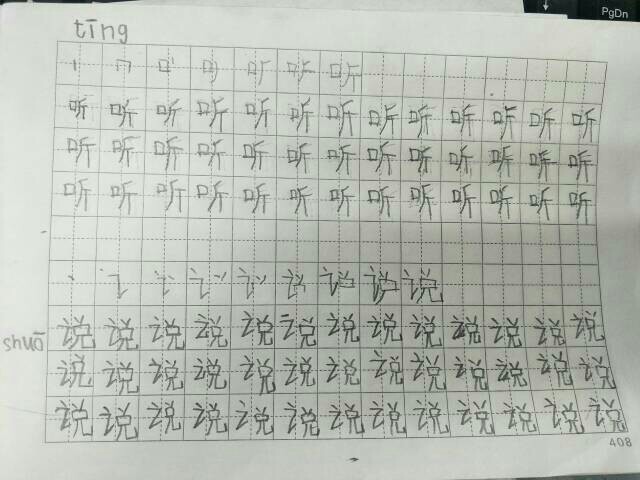 PgDn
tīng
听
听 听 听 听 听 听 听 听 听 听 听 听 听
听 听 听 听 听 听 听 听 听 听 听 听 听
听 听 听 听 听 听 听 听 听 听 听 听 听
说
shuō
说 说 说 说 说 说 说 说 说 说 说 说 说
说 说 说 说 说 说 说 说 说 说 说 说 说
说 说 说 说 说 说 说 说 说 说 说 说 说
408